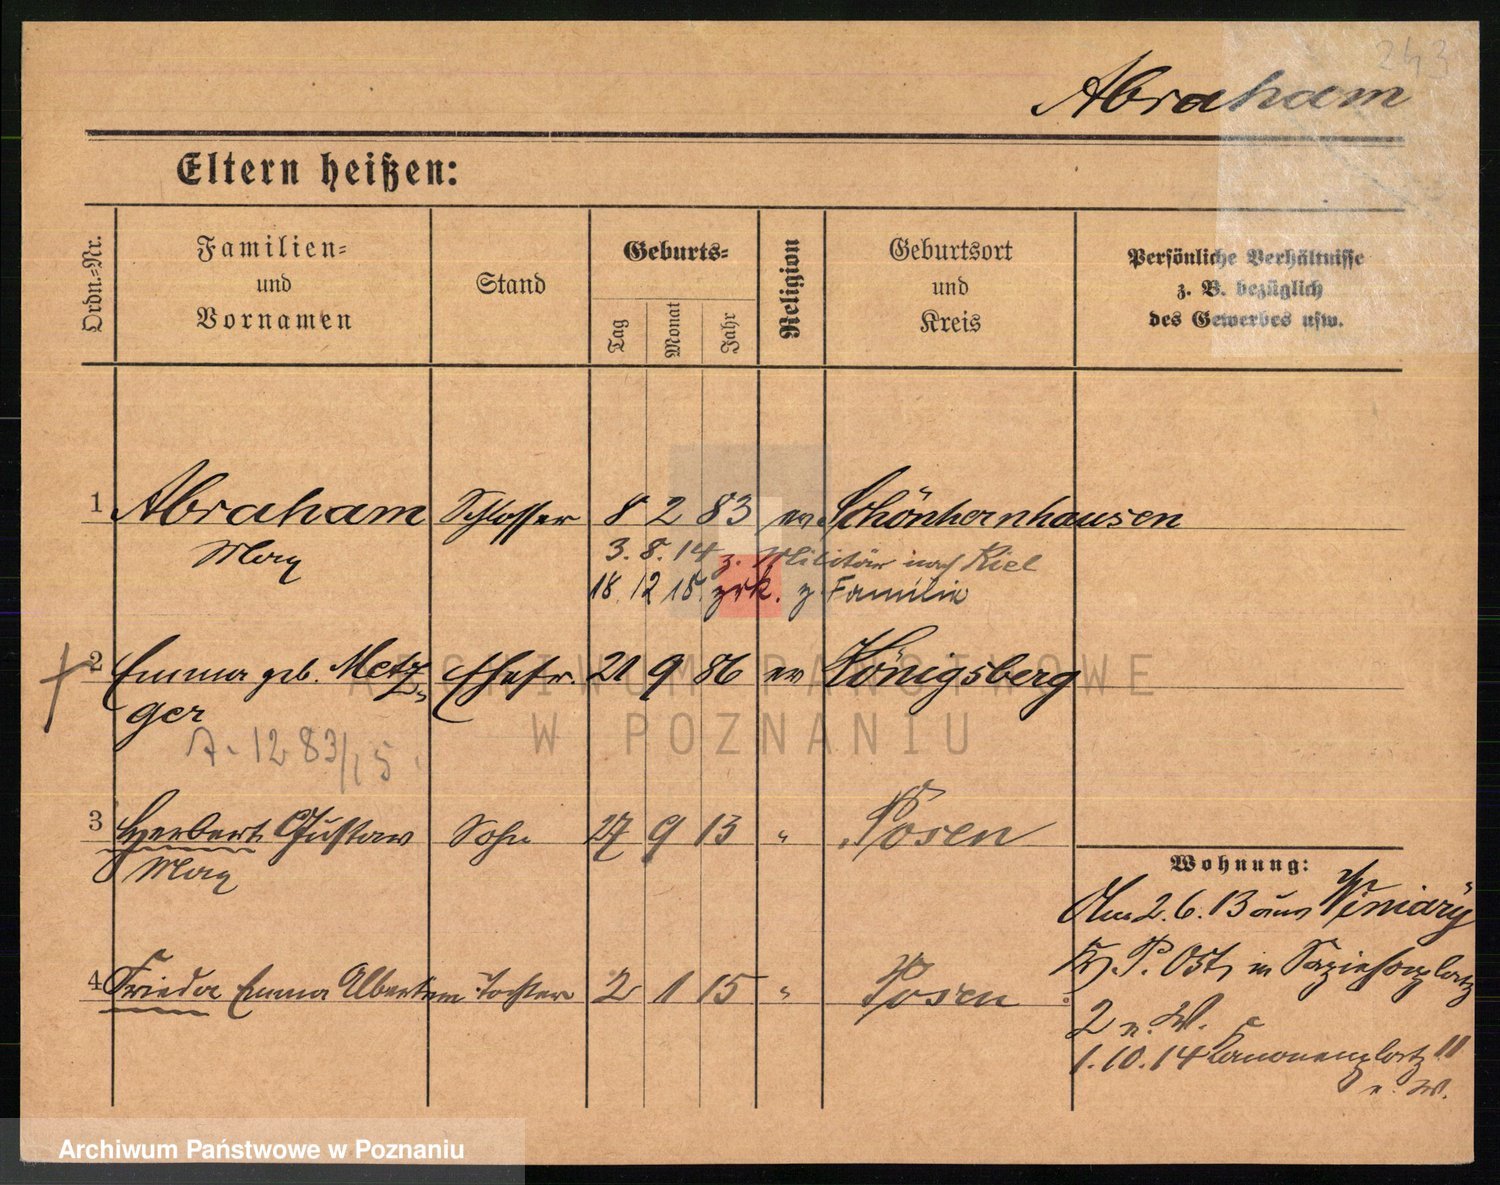 243
Abraham
Eltern heißen:
Ordn.-Nr.
Familien-
und
Vornamen
Stand
Geburts-
Tag
Monat
Jahr
Religion
Geburtsort
und
Kreis
Persönliche Verhältnisse
z. B. bezüglich
des Gewerbes usw.
1 Abraham Schlosser 8 2 83 ev. Schönhernhausen
Max
3. 8. 14 z. Militär nach Kiel
18. 12 15. zrk. z. Familie
2 Emma geb. Metz- Ehefr. 21 9 86 ev Königsberg
ger
A. 1283/15
3 Herbert Gustav Sohn 27 9 13 " Posen
Max
4 Frieda Emma Albertine Tochter 2 1 15 " Posen
Wohnung:
Am 2. 6. 13 aus Winiary
Kr P. Ost, in Sapiehaplatz
2 n. W.
1. 10. 14 Kanonenplatz 11
n. W.
ARCHIWUM PAŃSTWOWE
W POZNANIU
Archiwum Państwowe w Poznaniu